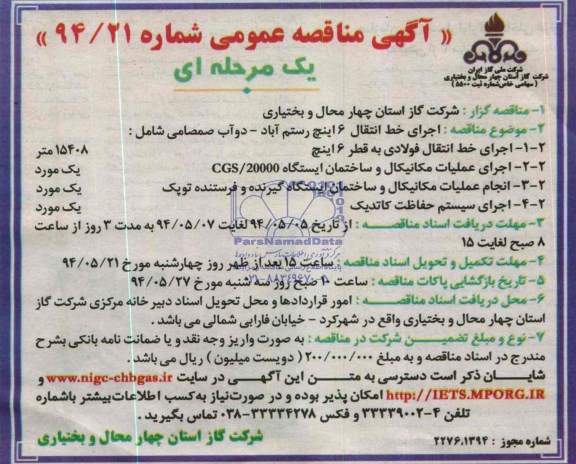 « آگهی مناقصه عمومی شماره ۹۴/۲۱ »
یک مرحله ای
شرکت ملی گاز ایران
شرکت گاز استان چهار محال و بختیاری
( سهامی خاص شماره ثبت ۵۵۰۰ )
۱- مناقصه گزار : شرکت گاز استان چهار محال و بختیاری
۲- موضوع مناقصه : اجرای خط انتقال ۶ اینچ رستم آباد - دوآب صمصامی شامل :
۱-۲- اجرای خط انتقال فولادی به قطر ۶ اینچ ۱۵۴۰۸ متر
۲-۲- اجرای عملیات مکانیکال و ساختمان ایستگاه CGS/20000 یک مورد
۳-۲- انجام عملیات مکانیکال و ساختمان ایستگاه گیرنده و فرستنده توپک یک مورد
۴-۲- اجرای سیستم حفاظت کاتدیک یک مورد
۳- مهلت دریافت اسناد مناقصه : از تاریخ ۹۴/۰۵/۰۵ لغایت ۹۴/۰۵/۰۷ به مدت ۳ روز از ساعت
۸ صبح لغایت ۱۵
۴- مهلت تکمیل و تحویل اسناد مناقصه : ساعت ۱۵ بعد از ظهر روز چهارشنبه مورخ ۹۴/۰۵/۲۱
۵- تاریخ بازگشایی پاکات مناقصه : ساعت ۱۰ صبح روز سه شنبه مورخ ۹۴/۰۵/۲۷
۶- محل دریافت اسناد مناقصه : امور قراردادها و محل تحویل اسناد دبیر خانه مرکزی شرکت گاز
استان چهار محال و بختیاری واقع در شهرکرد - خیابان فارابی شمالی می باشد .
۷- نوع و مبلغ تضمین شرکت در مناقصه : به صورت واریز وجه نقد و یا ضمانت نامه بانکی بشرح
مندرج در اسناد مناقصه و به مبلغ ۲۰۰/۰۰۰/۰۰۰ ( دویست میلیون ) ریال می باشد .
شایان ذکر است دسترسی به متن این آگهی در سایت www.nigc-chbgas.ir و
http://IETS.MPORG.IR امکان پذیر بوده و در صورت نیاز به کسب اطلاعات بیشتر با شماره
تلفن ۴-۳۳۳۳۹۰۰۲ و فکس ۳۳۳۳۴۲۷۸-۰۳۸ تماس بگیرید .
شرکت گاز استان چهار محال و بختیاری
شماره مجوز : ۲۲۷۶.۱۳۹۴
ParsNamadData